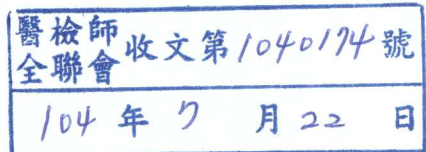 醫檢師全聯會收文第1040174號
104年7月22日